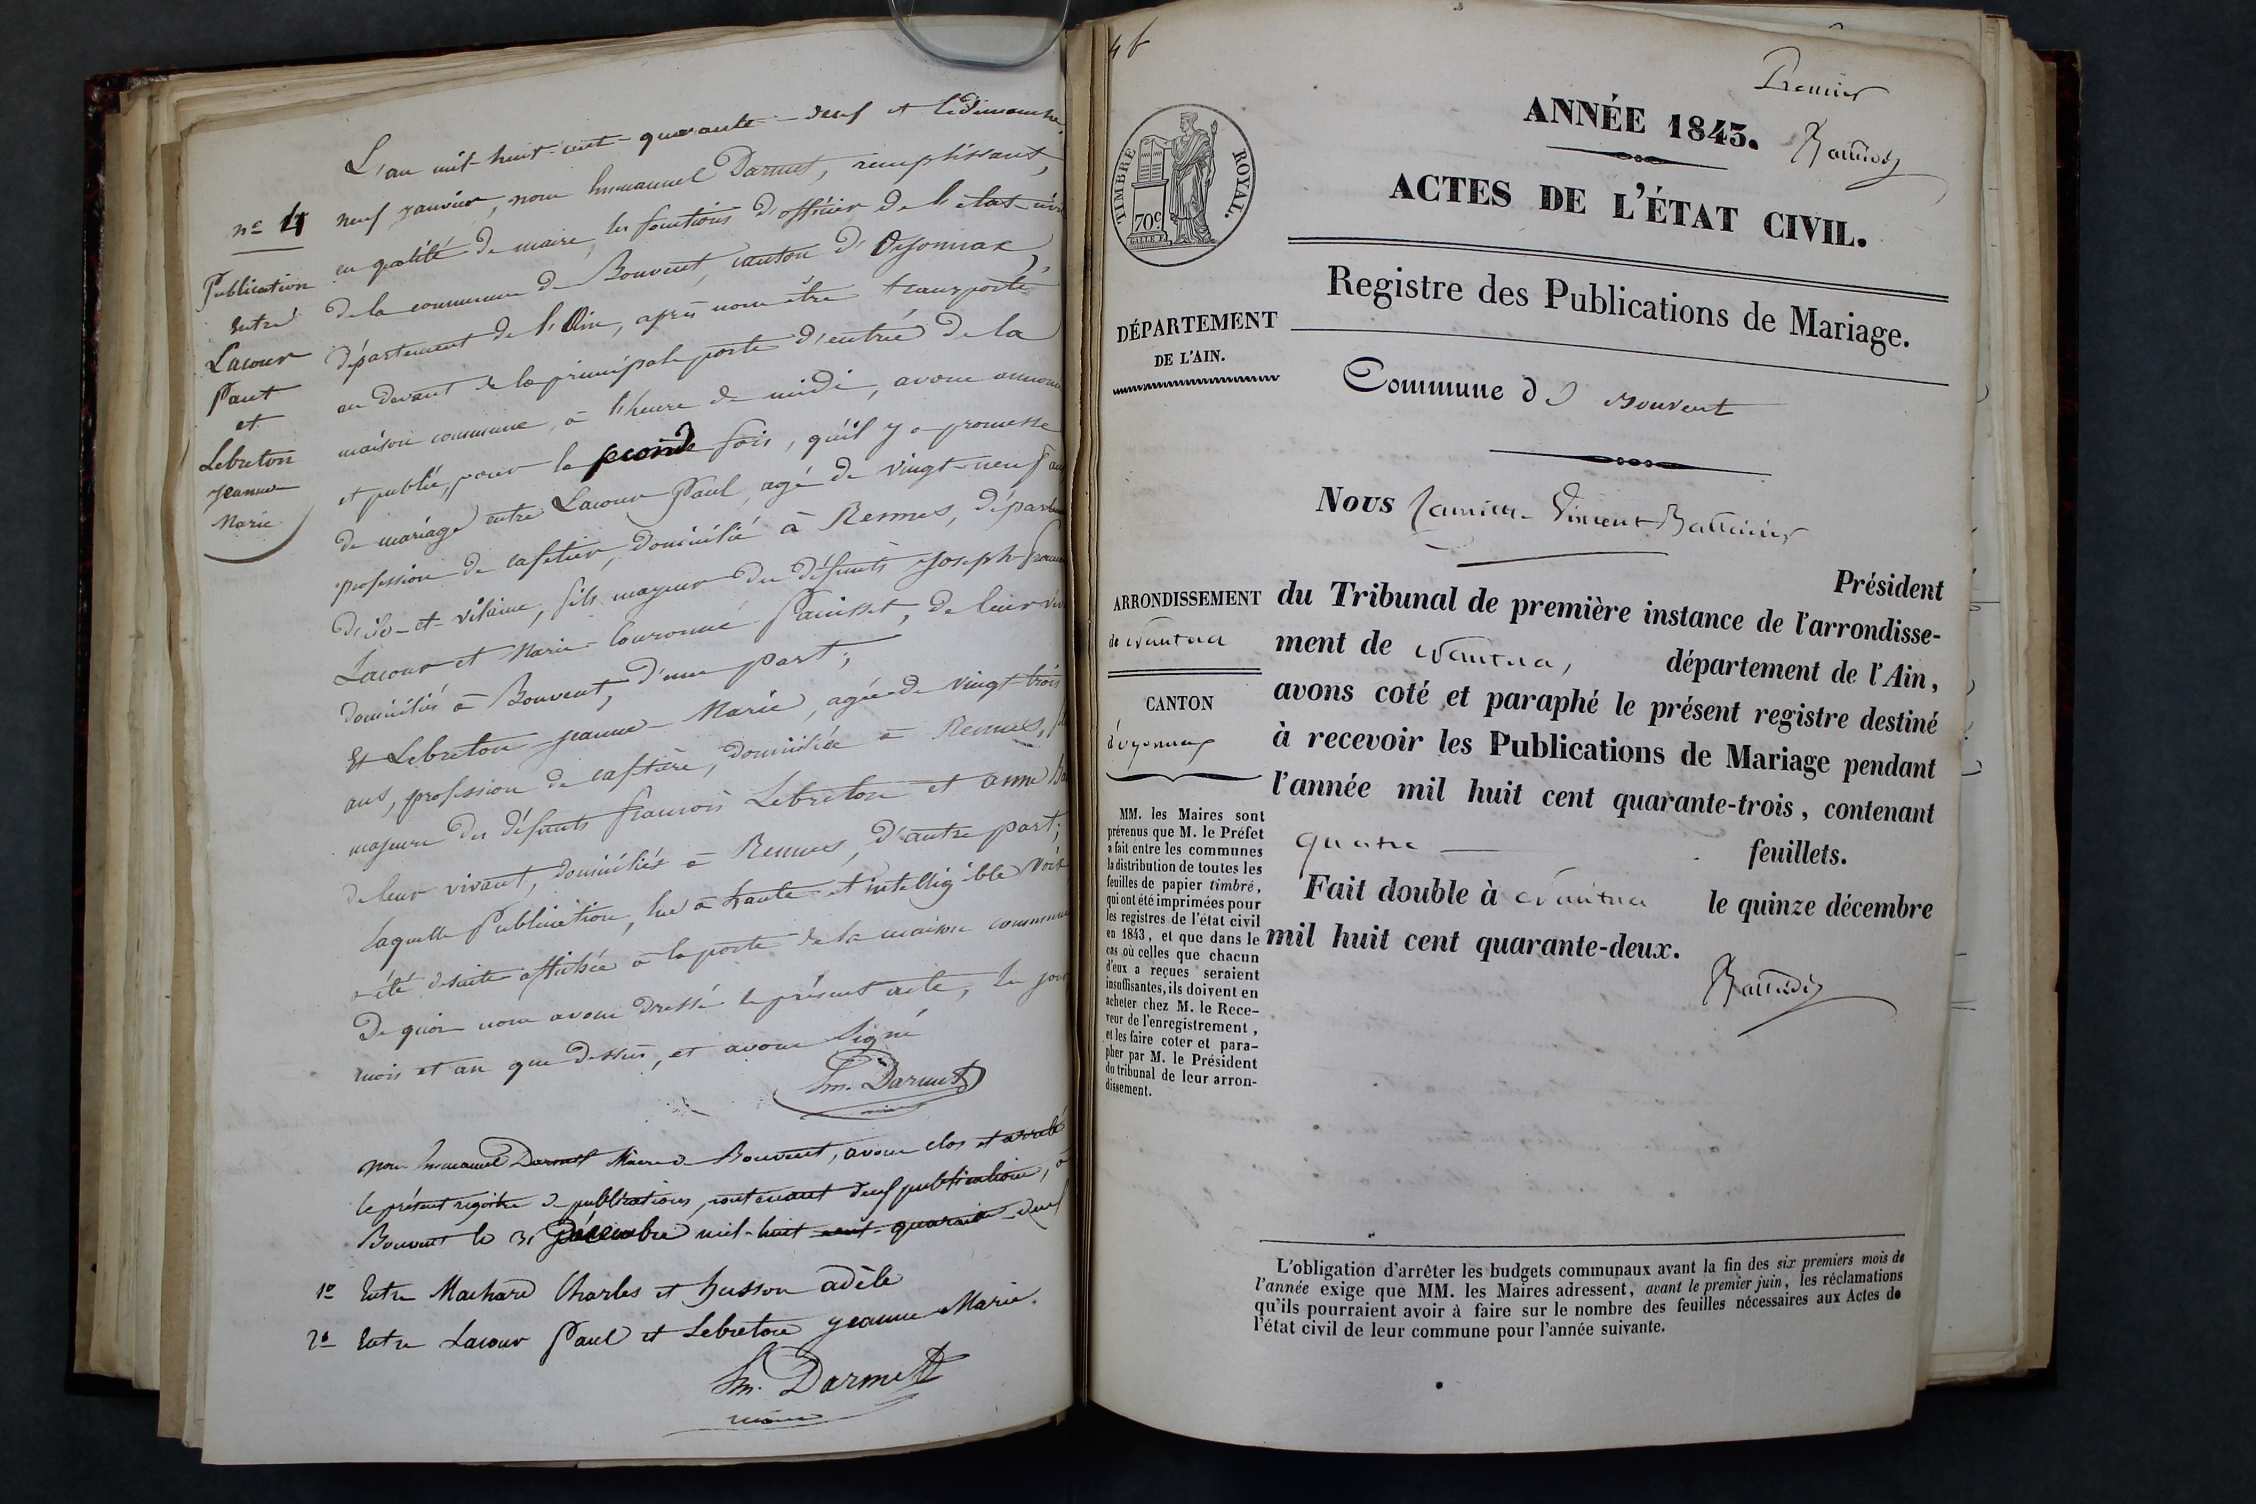 L'an mil-huit-cent-quarante-deux et le dimanche,
n° 4 neuf janvier, nous Emmanuel Darmet, remplissant,
en qalité de maire, les fonctions d'officier de l'état-civil
Publication de la commune de Bouvent, canton d'Oyonnax,
entre département de l'Ain, après nous être transporté
Lacour au devant de la principale porte d'entrée de la
Paul maison commune, à l'heure de midi, avons annoncé
et et publié, pour la seconde fois, qu'il y a promesse
Lebreton de mariage entre Lacour Paul, agé de vingt-neuf ans
Jeanne profession de cafetier, domicilié à Rennes, départem
Marie d'ile-et-vilaine, fils mageur des défunts Joseph
Lacour et Marie Couronné, de leur viv
domiciliés à Bouvent, d'une part;
Et Lebreton Jeanne-Marie, agée de vingt-trois
ans, profession de cafetière, domiciliée à Rennes,
mageure des défunts francois Lebreton et anne
de leur vivant, domiciliés à Rennes, d'autre part;
laquelle Publication, lue à haute et intelligible voix
a été desuite affichée à la porte de la maison commune
De quoi nous avons dressé le présent acte, les jour
mois et an que dessus, et avons signé
Em. Darmet
maire
nous Emmanuel Darmet Maire de Bouvent, avons clos et arreté
le présent régistre de publications, contenant deux publications, à
Bouvent le 31 Décembre mil-huit-cent-quarante-deux
1° Entre Machard Charles et husson adèle
2° Entre Lacour Paul et Lebreton Jeanne Marie.
Em. Darmet
maire
Premier
ANNÉE 1843.
TIMBRE ROYAL.
70c
ACTES DE L'ÉTAT CIVIL.
Registre des Publications de Mariage.
DÉPARTEMENT
DE L'AIN.
Commune de Bouvent
Nous
Président
ARRONDISSEMENT
de Nantua
CANTON
d'oyonnax
du Tribunal de première instance de l'arrondisse-
ment de Nantua, département de l'Ain,
avons coté et paraphé le présent registre destiné
à recevoir les Publications de Mariage pendant
l'année mil huit cent quarante-trois, contenant
quatre feuillets.
Fait double à Nantua le quinze décembre
mil huit cent quarante-deux.
MM. les Maires sont
prévenus que M. le Préfet
a fait entre les communes
la distribution de toutes les
feuilles de papier timbré,
qui ont été imprimées pour
les registres de l'état civil
en 1843, et que dans le
cas où celles que chacun
d'eux a reçues seraient
insuffisantes, ils doivent en
acheter chez M. le Rece-
veur de l'enregistrement,
et les faire coter et para-
pher par M. le Président
du tribunal de leur arron-
dissement.
L'obligation d'arrêter les budgets communaux avant la fin des six premiers mois de
l'année exige que MM. les Maires adressent, avant le premier juin, les réclamations
qu'ils pourraient avoir à faire sur le nombre des feuilles nécessaires aux Actes de
l'état civil de leur commune pour l'année suivante.